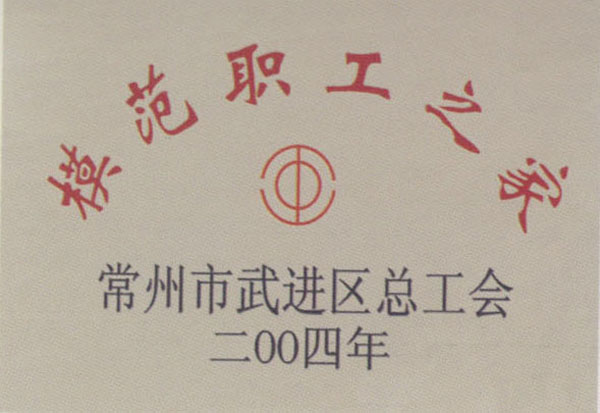 模范职工之家
常州市武进区总工会
二00四年